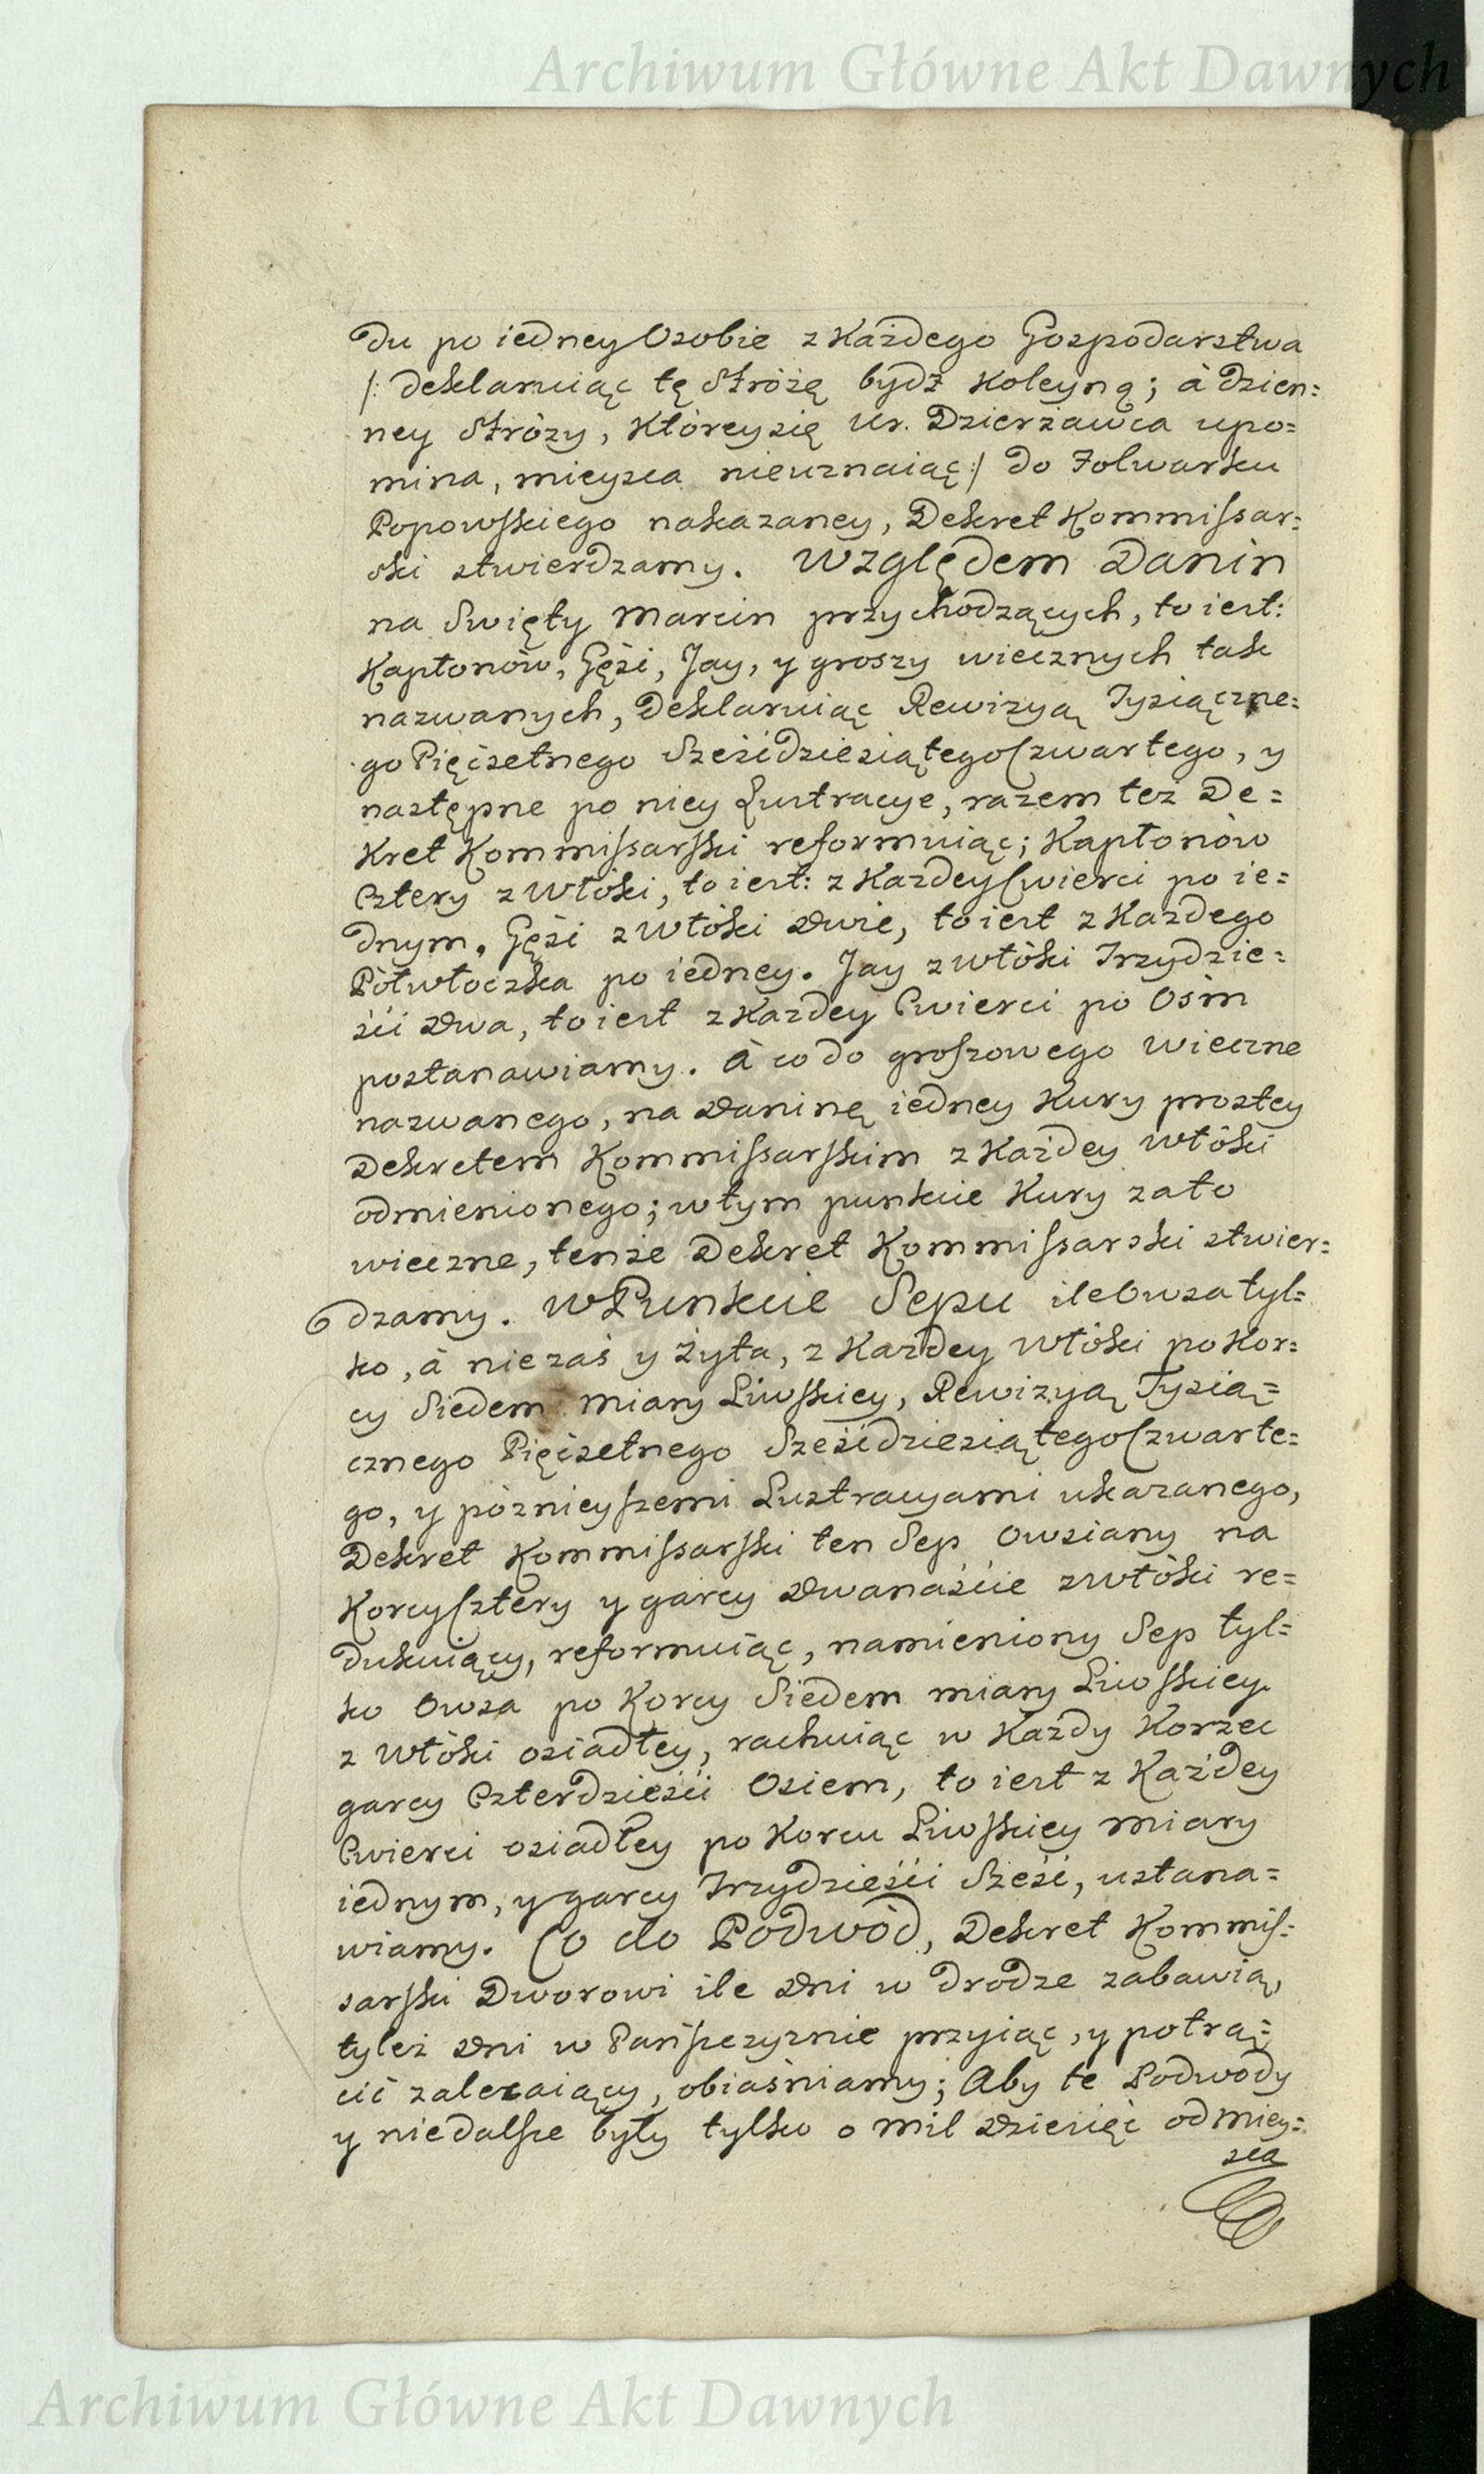 Archiwum Główne Akt Dawnych
du po iedney Osobie z Każdego Gospodarstwa
/: deklaruiąc tę Stróżę bydź Koleyną; à dzien=
ney Stróży, Którey się Ur. Dzierżawca upo=
mina, mieysca nieuznaiąc:/ do Folwarku
Popowskiego nakazaney, Dekret Kommissar=
ski stwierdzamy. Względem Danin
na Swięty Marcin przychodzących, to iest:
Kapłonów, Gęśi, Jay, y groszy wiecznych tak
nazwanych, Deklaruiąc Rewizyą Tysiączne=
go Pięćsetnego Sześćdziesiątego Czwartego, y
następne po niey Lustracye, razem też De=
kret Kommissarski reformuiąc; Kapłonów
Cztery z Włóki, to iest: z Każdey Cwierci po ie=
dnym, Gęśi z Włóki Dwie, to iest z Każdego
Półwłoczka po iedney. Jay z Włóki Trzydzie=
ści Dwa, to iest z Każdey Cwierci po Ośm
postanawiamy. à co do groszowego wieczne
nazwanego, na Daninę iedney Kury prostey
Dekretem Kommissarskim z Każdey Włóki
odmienionego; w tym punkcie Kury za to
wieczne, tenże Dekret Kommissarski stwier=
dzamy. w Punkcie Sepu ile Owsa tyl=
ko, à nie zaś y Żyta, z Każdey Włóki po Kor=
cy Siedem miary Liwskiey, Rewizyą Tysią=
cznego Pięćsetnego Sześćdziesiątego Czwarte=
go, y póznieyszemi Lustracyami ukazanego,
Dekret Kommissarski ten Sep Owsiany na
Korcy Cztery y garcy Dwanaście z Włóki re=
dukuiący, reformuiąc, namieniony Sep tyl=
ko Owsa po Korcy Siedem miary Liwskiey
z Włóki osiadłey, rachuiąc w Każdy Korzec
garcy Czterdzieści Osiem, to iest z Każdey
Cwierci osiadłey po Korcu Liwskiey miary
iednym, y garcy Trzydzieści Sześć, ustana=
wiamy. Co do Podwód, Dekret Kommis=
sarski Dworowi ile Dni w drodze zabawią,
tyleż Dni w Pańszczyznie przyiąc, y potrą=
cić zalecaiący, obiaśniamy; Aby te Podwody
y niedalsze były tylko o mil Dziesięć od miey=
sca
Archiwum Główne Akt Dawnych